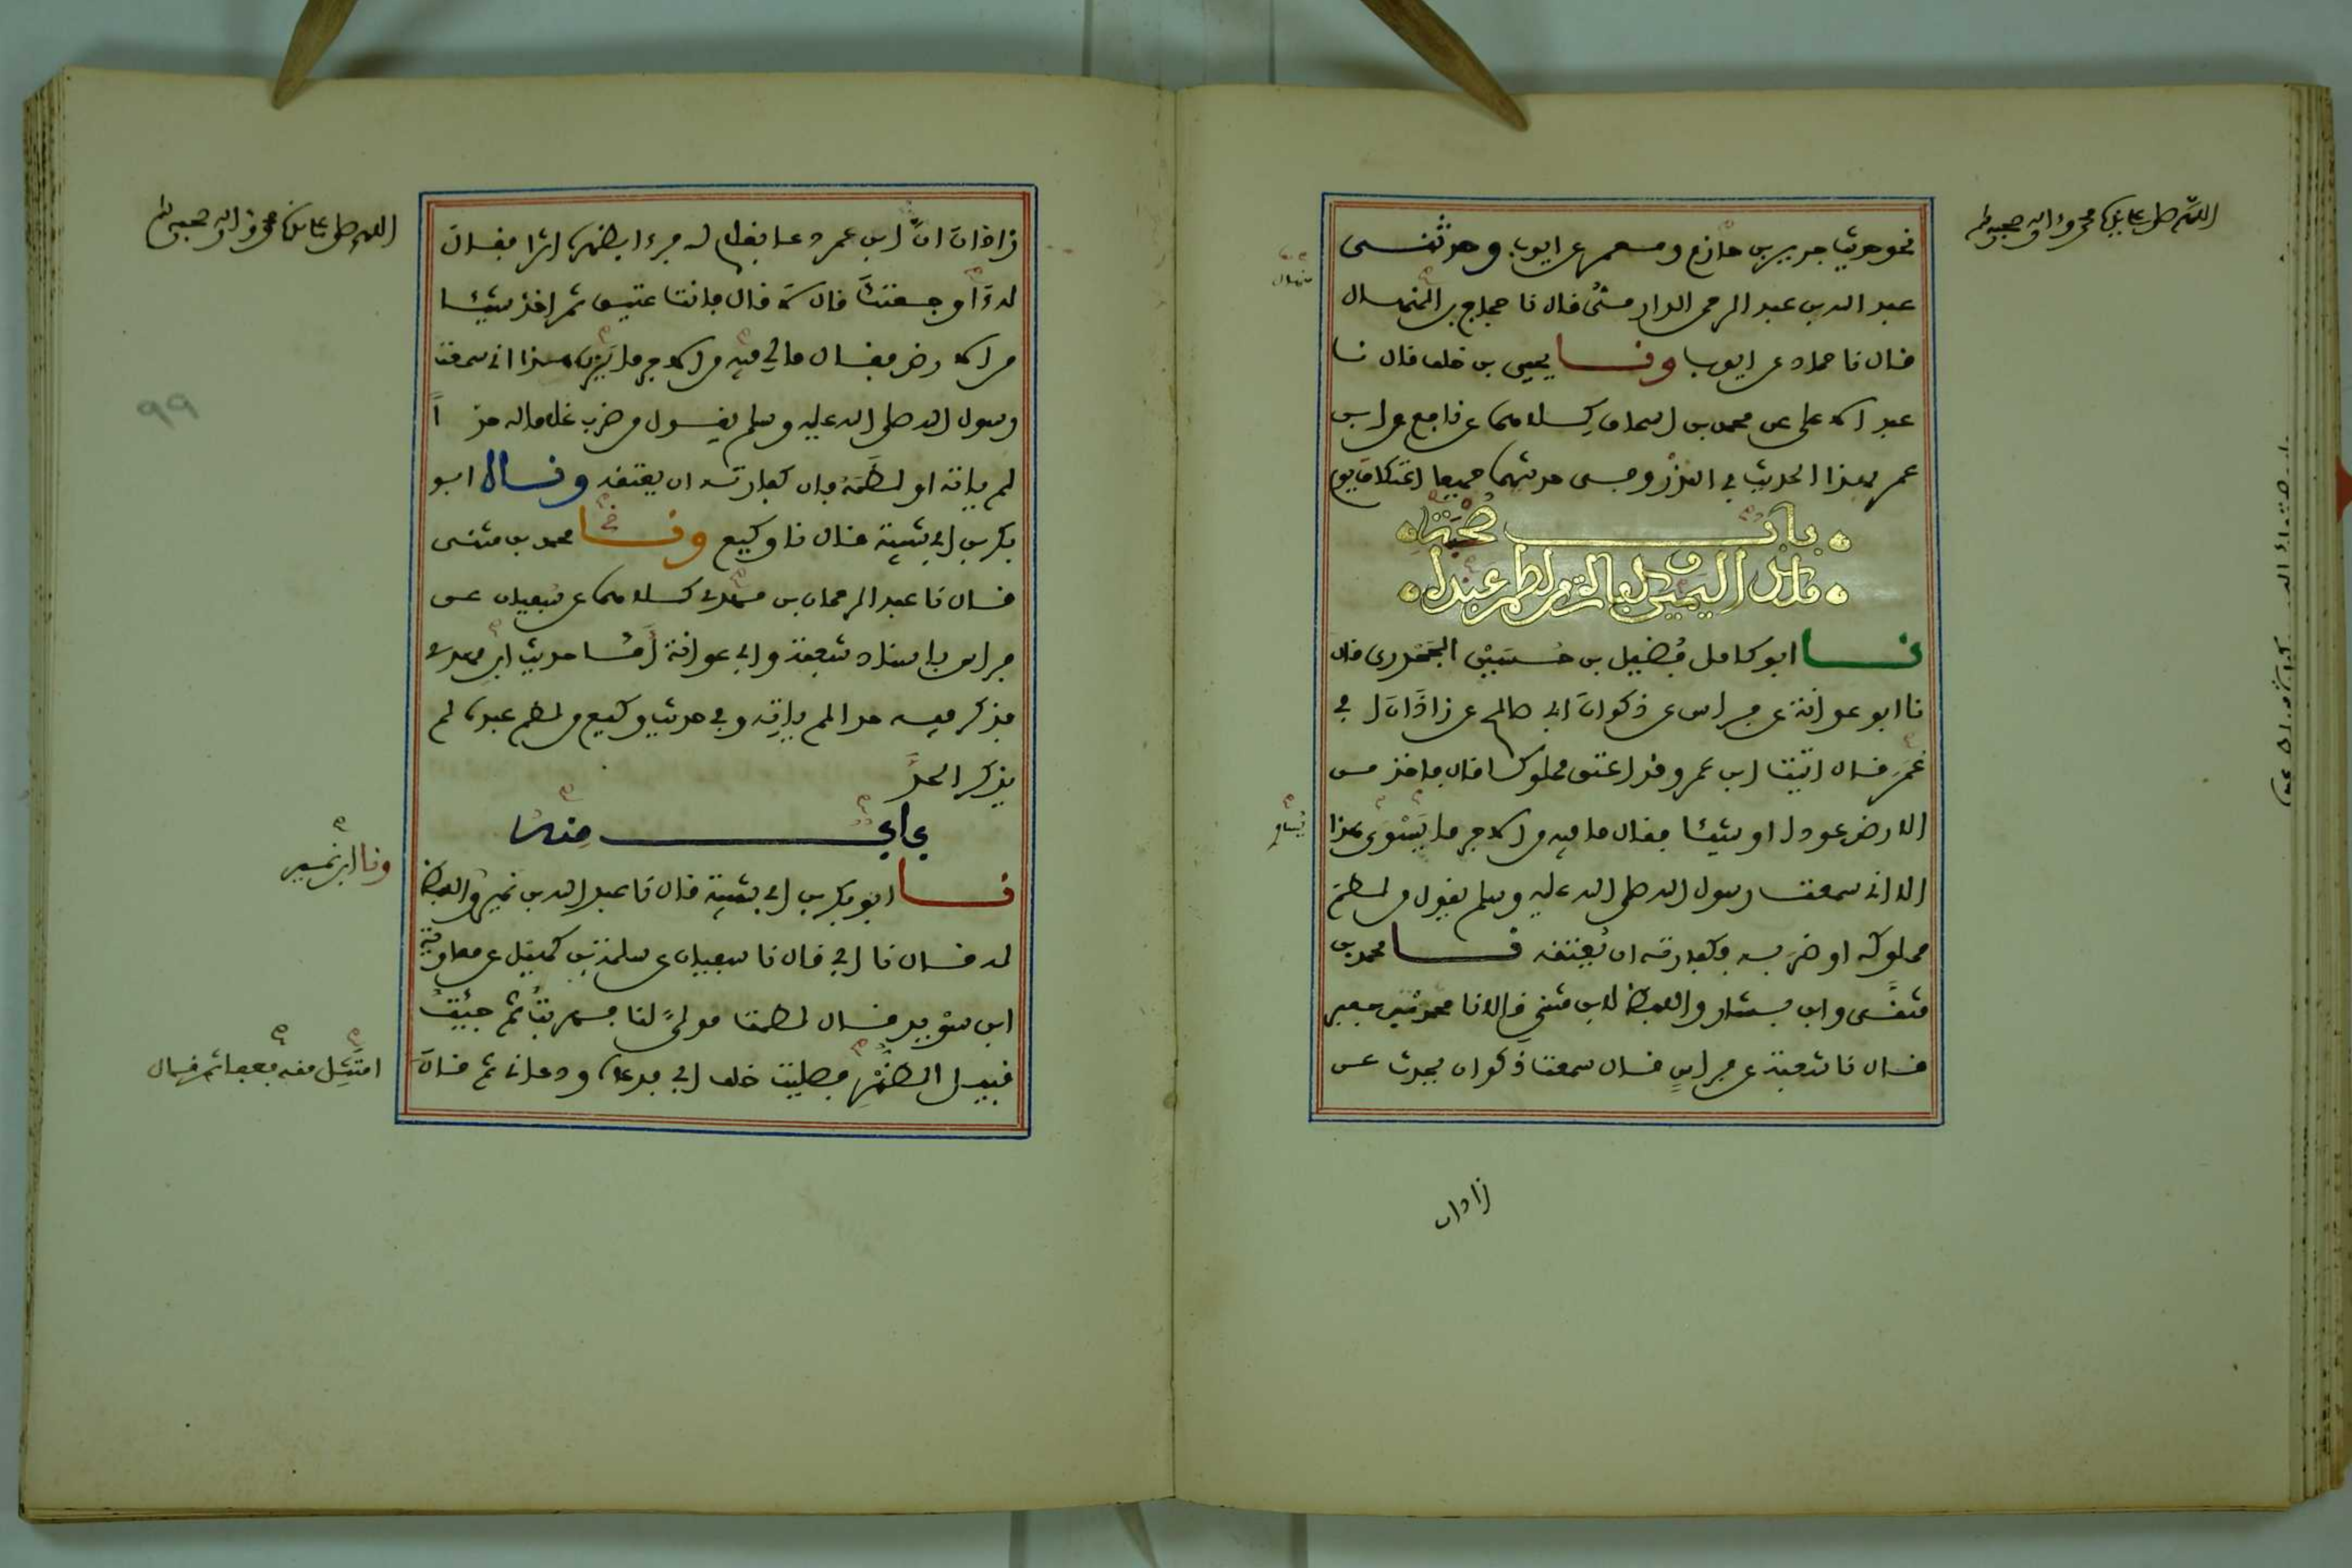 اللهم صل على سيدنا محمد وءاله وصحبه وسلم
نحو حديث جرير بن حازم ومعمر عن ايوب وحدثنـي
عبد الله بن عبد الرحمن الدارمي قال نا حجاج بن المنهال
منهال
قال نا حماد عن ايوب ونـا يحيى بن خلف قال نـا
عبد الاعلى عن محمد بن اسحاق كلاهما عن نافع عن ابن
عمر بهذا الحديث في النذر وفي حديثهما جميعا اعتكاف يوم
بـاب صحبة
ملك اليمين وكفارة من لطم عبده
نـا ابو كامل فضيل بن حسين الجحدري قال
نا ابو عوانة عن فراس عن ذكوان ابي صالح عن زاذان ابي
عمر قال اتيت ابن عمر وقد اعتق مملوكا قال فاخذ من
الارض عودا او شيئا فقال ما فيه من الاجر ما يسوى هذا
يساوي
الا اني سمعت رسول الله صلى الله عليه وسلم يقول من لطم
مملوكه او ضربه فكفارته ان يعتقه نـا محمد بن
مثنى وابن بشار واللفظ لابن مثنى قالا نا محمد بن جعفر
قال نا شعبة عن فراس قال سمعت ذكوان يحدث عن
زاذان
اللهم صل على سيدنا محمد وءاله وصحبه وسلم
زاذان ان ابن عمر دعا بغلام له فرءا بظهره اثرا فقال
له اوجعتك قال لا قال فانت عتيق ثم اخذ شيئا
من الارض فقال ما لي فيه من الاجر ما يزن هذا اني سمعت
٩٩
رسول الله صلى الله عليه وسلم يقول من ضرب غلاما له حدا
لم ياته او لطمه فان كفارته ان يعتقه ونـا ابو
بكر بن ابي شيبة قال نا وكيع ونـا محمد بن مثنى
قال نا عبد الرحمان بن مهدي كلاهما عن سفيان عن
فراس باسناد شعبة وابي عوانة اما حديث ابن مهدي
فذكر فيه حدا لم ياته وفي حديث وكيع من لطم عبده لم
يذكر الحد
باب منه
نـا ابو بكر بن ابي شيبة قال نا عبد الله بن نمير واللفظ
ونا ابن نمير
له قال نا ابي قال نا سفيان عن سلمة بن كهيل عن معاوية
ابن سويد قال لطمت مولى لنا فهربت ثم جئت
قبيل الظهر فصليت خلف ابي فدعاه ودعاني ثم قال
امتثل منه فعفا ثم قال